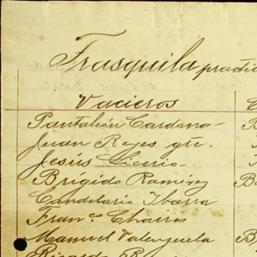 Frasquila practic
Vacieros
Pantaleón Cardona
Juan Reyes gre.
Jesús Licerio
Brígido Ramirez
Candelario Ibarra
Fran.co Chairos
Manuel Valenzuela
Ricardo